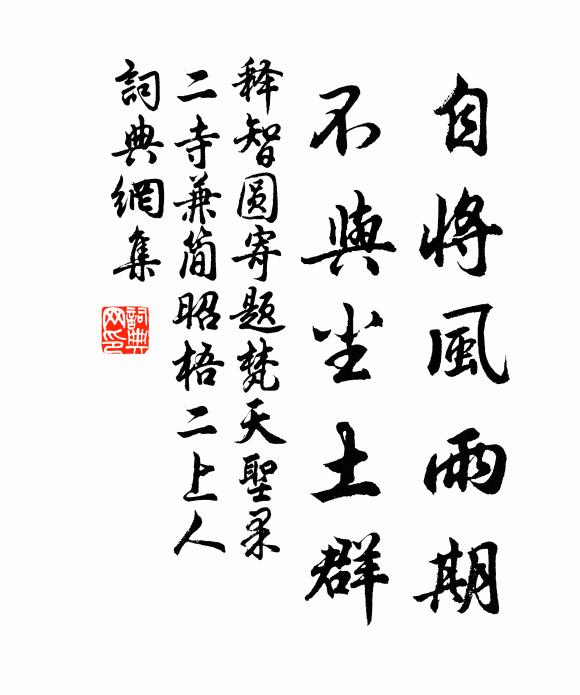 自將風雨期
不與尘土群
释智圆寄题梵天聖果
二寺兼简昭梧二上人
詞典網集
詞典网印